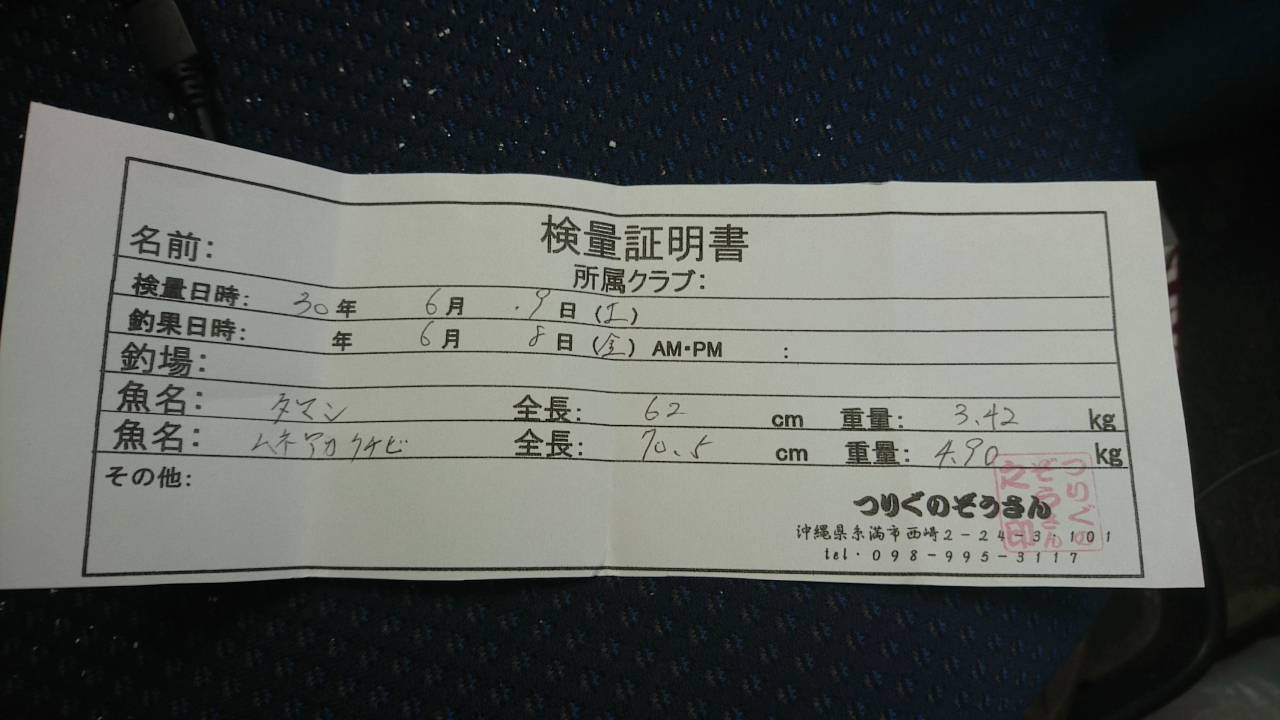 検量証明書
名前:
所属クラブ:
検量日時: 30年 6月 9日 (土)
釣果日時: 年 6月 8日 (金) AM・PM :
釣場:
魚名: タマン 全長: 62 cm 重量: 3.42 kg
魚名: ムネアカクチビ 全長: 70.5 cm 重量: 4.90 kg
その他:
つりぐのぞうさん
沖縄県糸満市西崎2-24-3・101
tel・098-995-3117
つりぐの
ぞうさん
之印